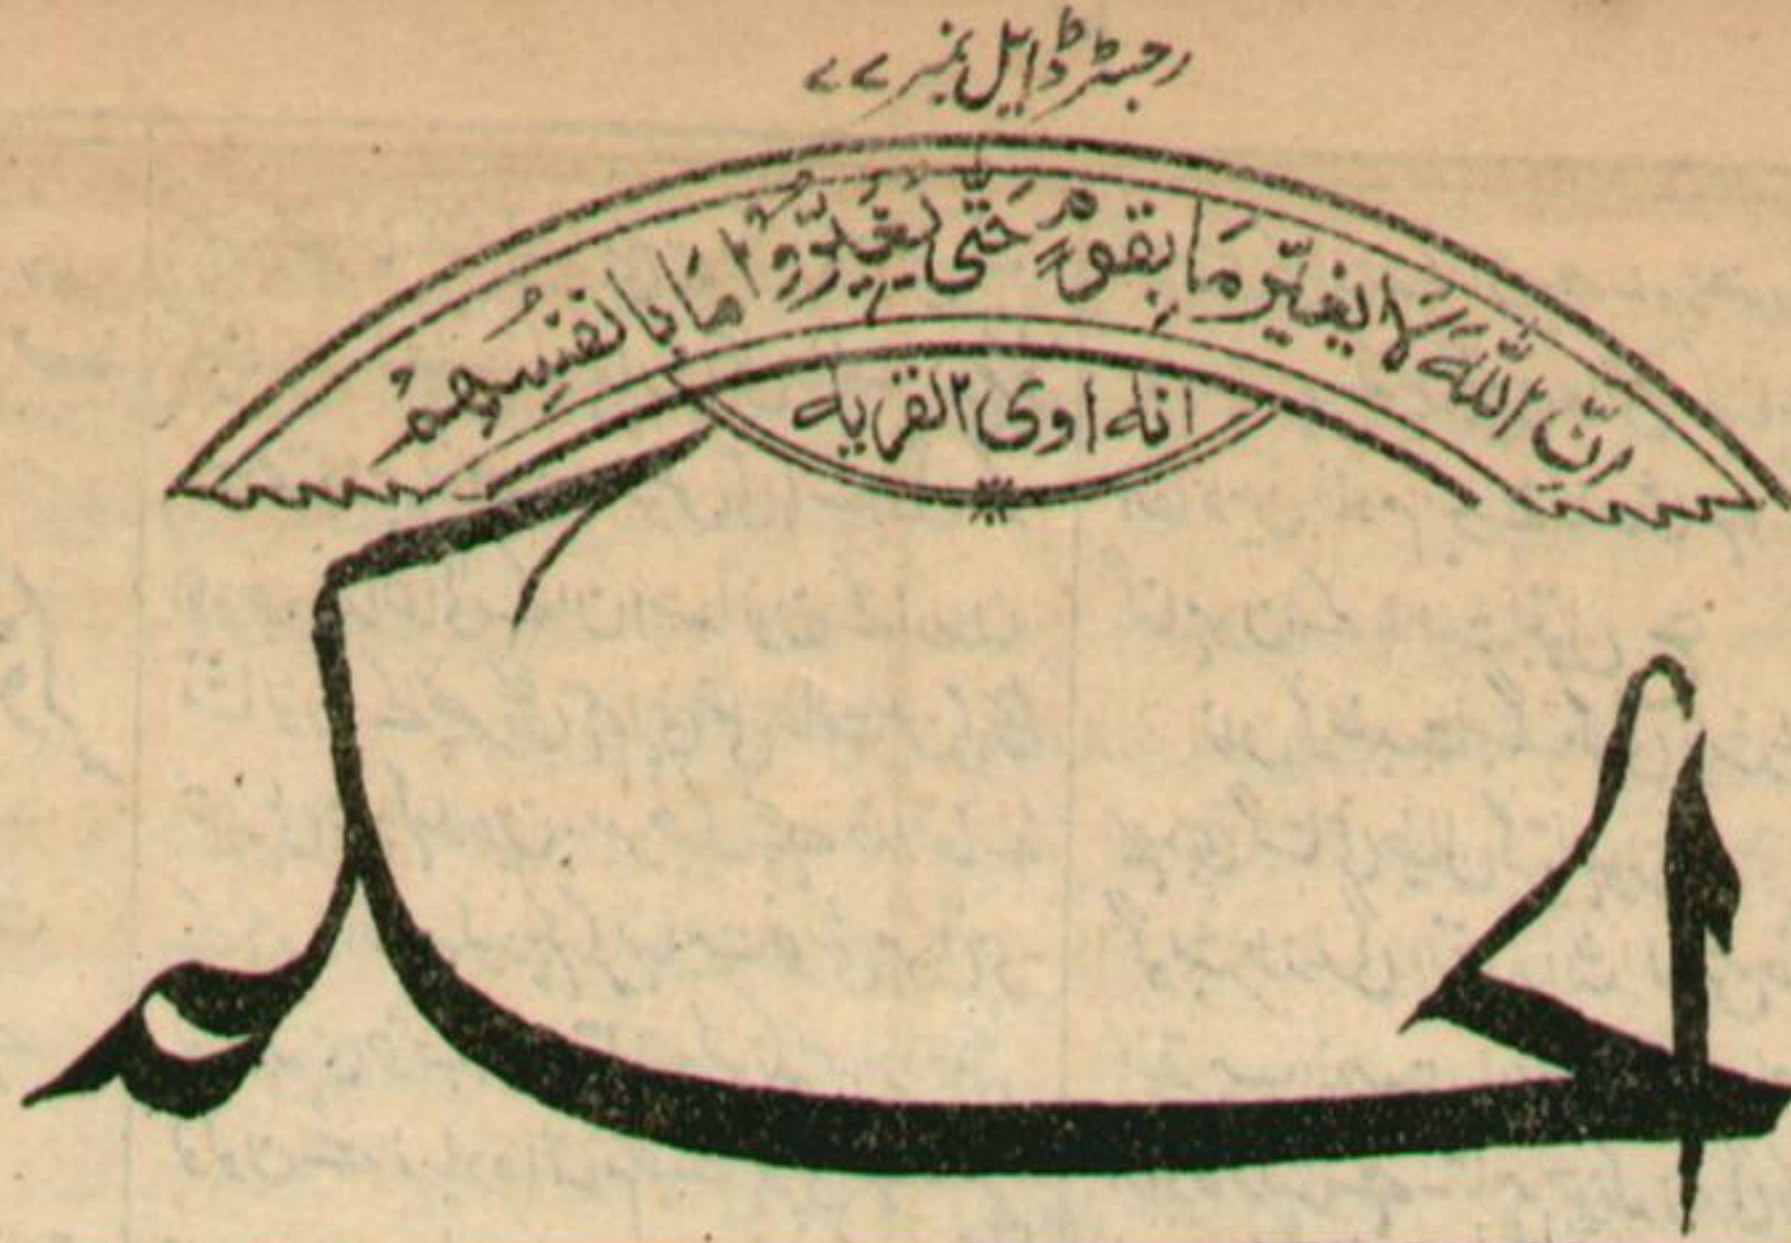 رجسٹرڈ ایل نمبر ۷۷
اِنَّ اللّٰهَ لَا یغیّر مَا بِقَومٍ حَتّٰی یُغَیِّرُوْا مَا بِاَنفسِهِمْ
انه اوی القریه
الحکم